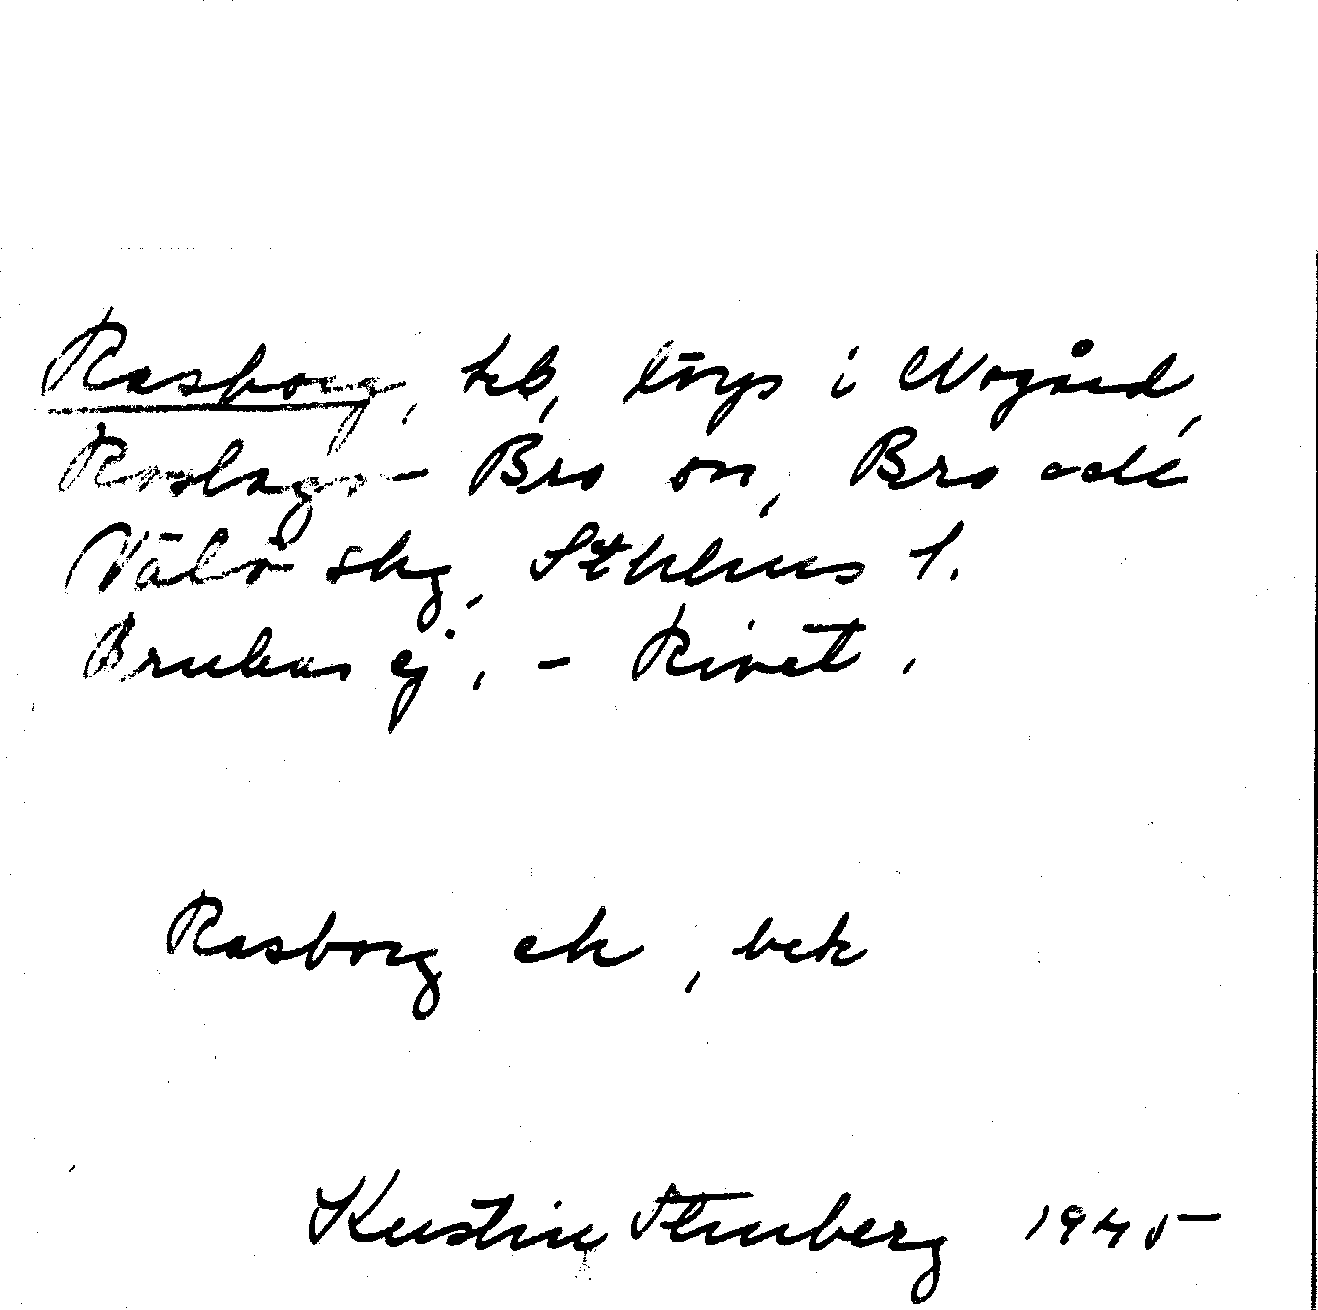 Rasborg, hb, torp i Nogård,
Roslags-Bro sn, Bro o Väddö
skg, Sthlms l.
Brukas ej. - Rivet.
Rasborg ek, bek
Kerstin Stenberg 1945